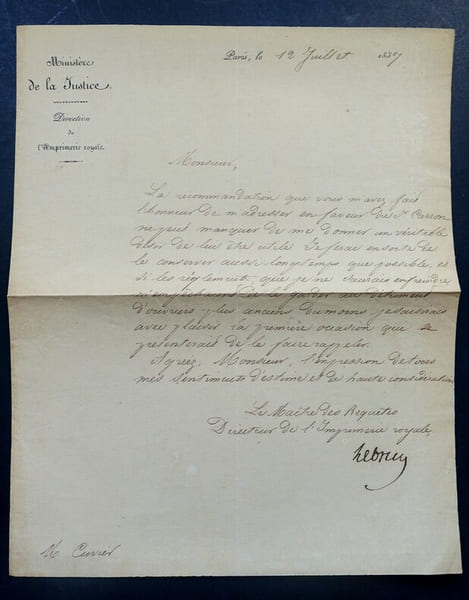 Ministère
de la Justice.
Direction
de
l'Imprimerie royale.
Paris, le 12 Juillet 1837
Monsieur,
La recommandation que vous m'avez fait
l'honneur de m'adresser en faveur du Sr
ne peut manquer de me donner un véritable
désir de lui être utile. Je ferai en sorte de
le conserver aussi longtemps que possible, et
si les règlements, que je ne saurais enfreindre
de le garder au détriment
d'ouvriers plus anciens du moins je saisirais
avec plaisir la première occasion qui se
présenterait de le faire rappeler.
Agréez, Monsieur, l'expression de tous
mes sentiments d'estime et de haute considération
Le Maître des Requêtes
Directeur de l'Imprimerie royale,
Lebrun
M. Cuvier